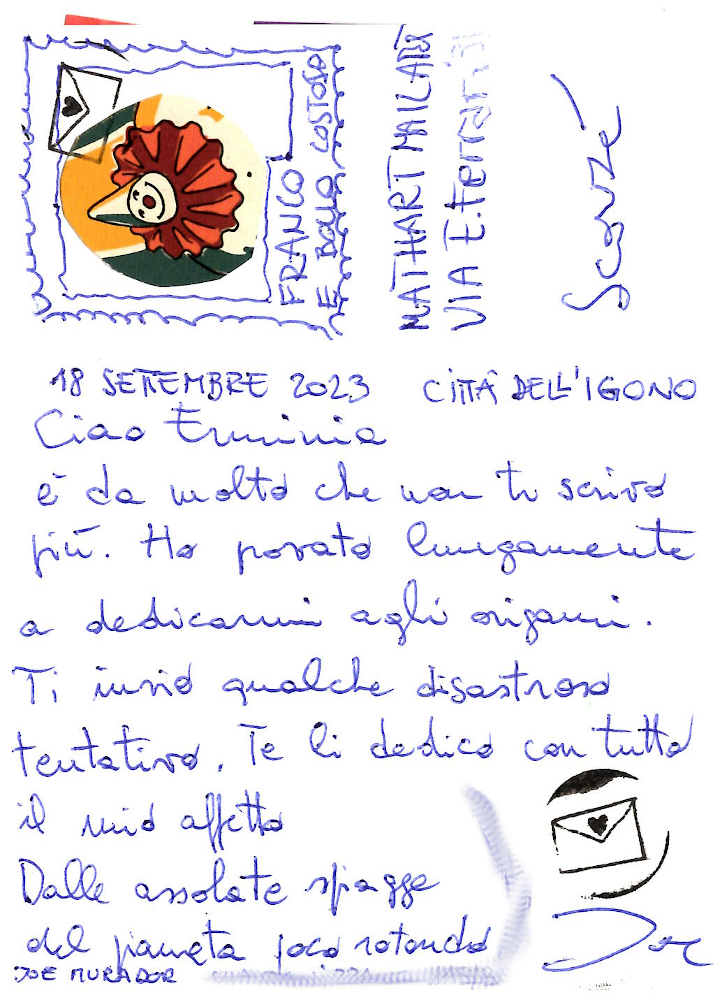 FRANCO
E BOLLO COSTOSO
MATHART MAILART
VIA E. Ferrari
18 SETTEMBRE 2023 CITTÀ DELL'IGONO
Ciao Erminia
è da molto che non ti scrivo
più. Ho povato lungamente
a dedicarmi agli origami.
Ti invio qualche disastroso
tentativo. Te li dedico con tutto
il mio affetto
Dalle assolate spiagge
del pianeta poco rotondo
Joe
JOE MURADOR